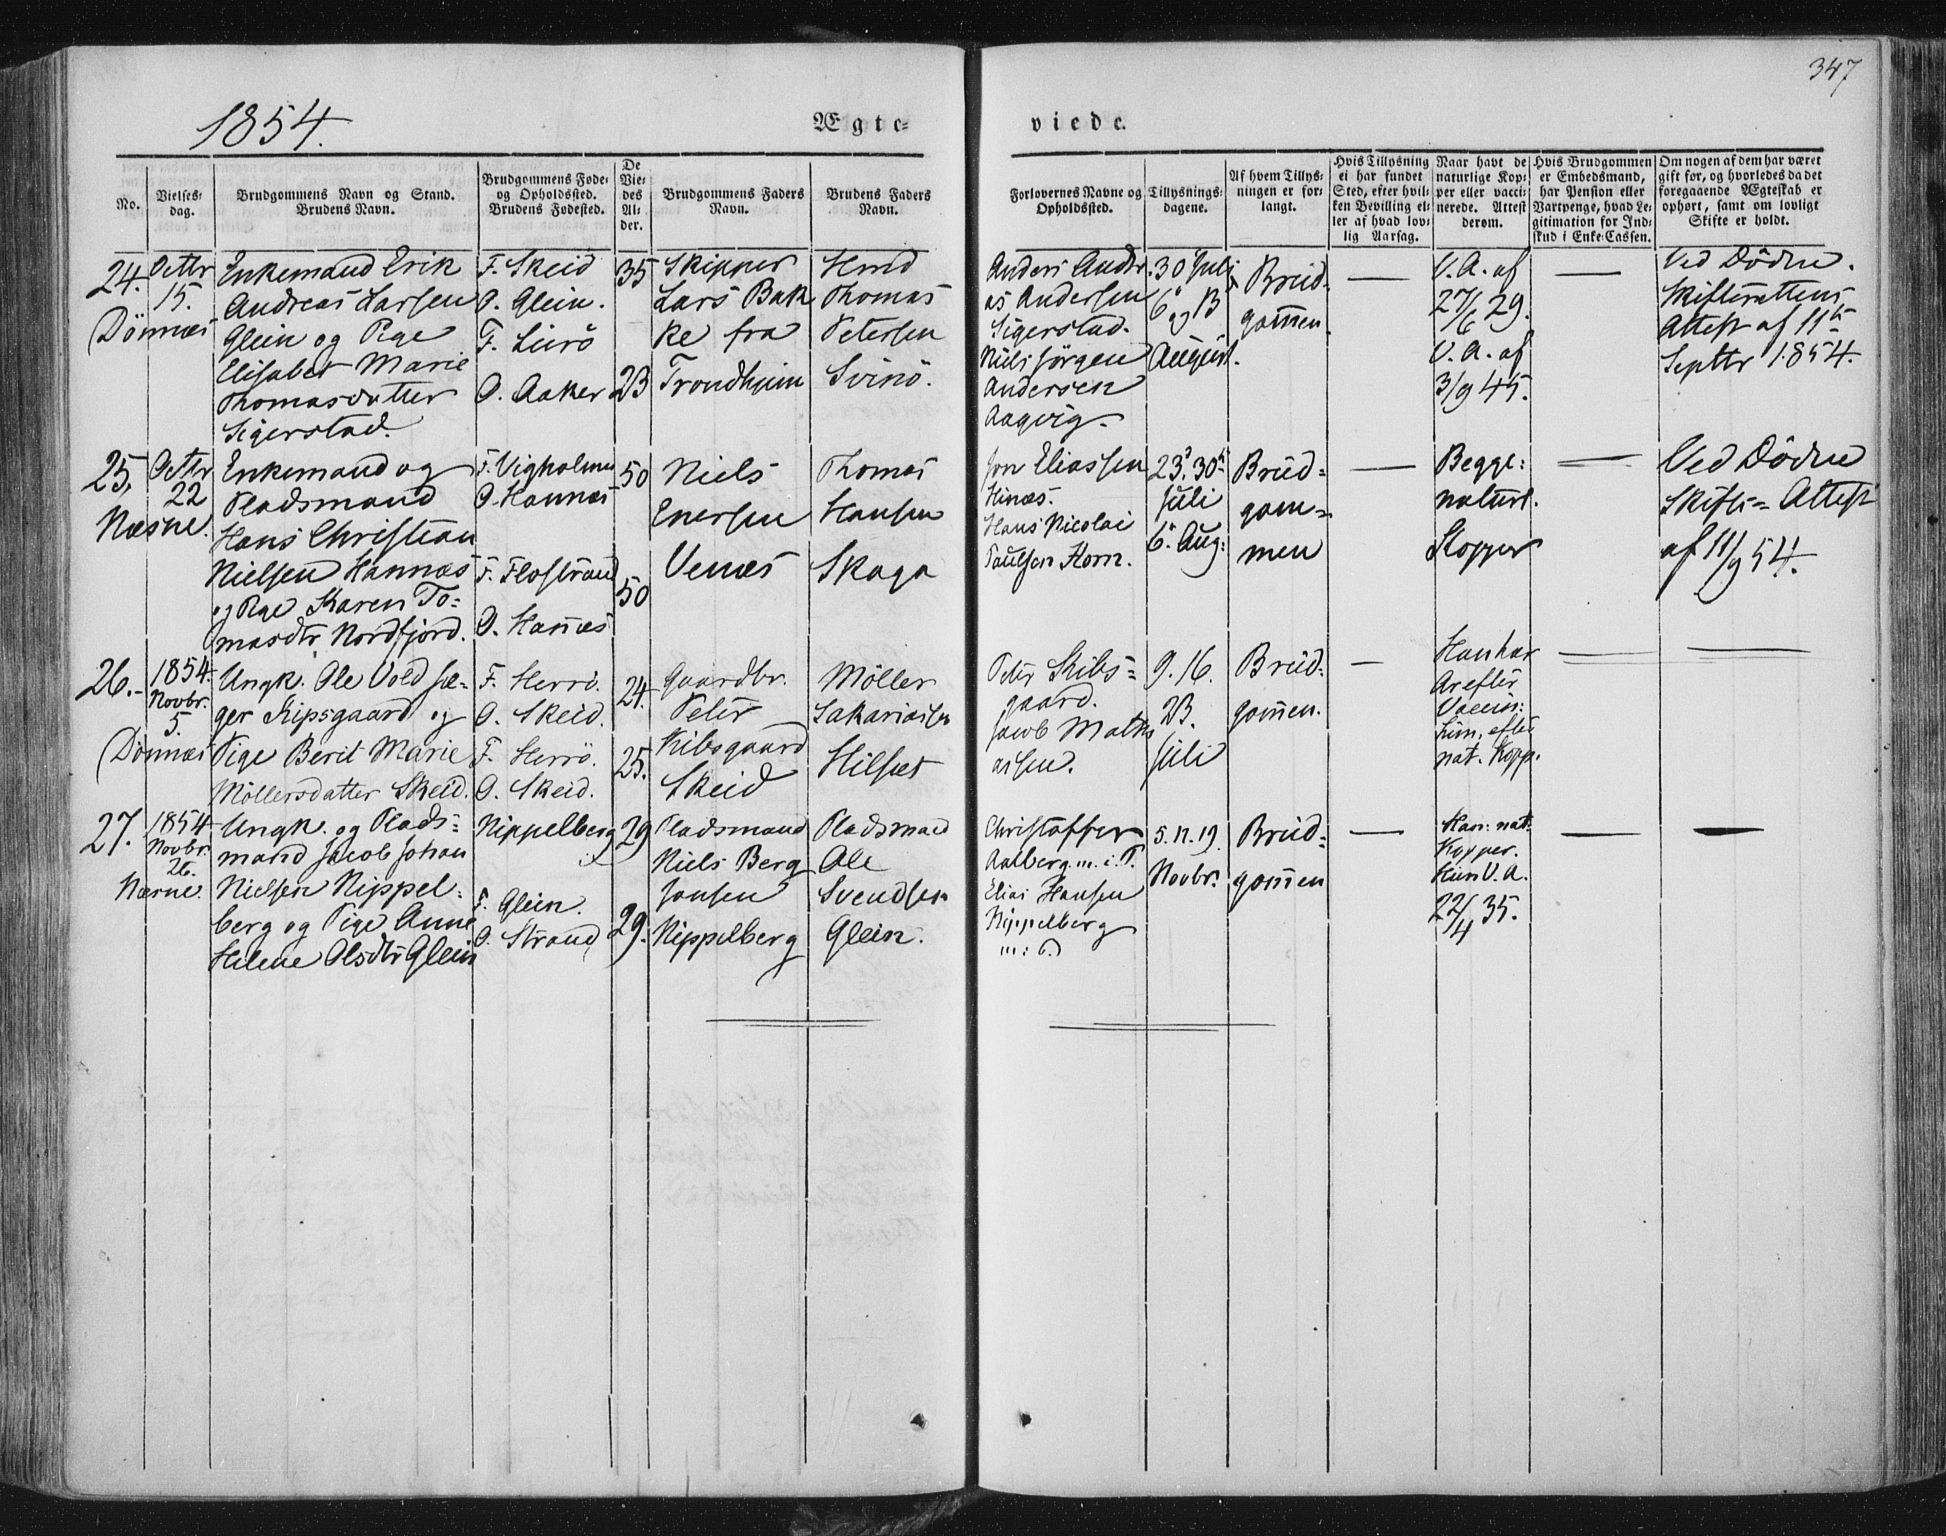 347
1854.
Ægte-
viede.
No.
Vielses-
dag.
Brudgommens Navn og Stand.
Brudens Navn.
Brudgommens Føde-
og Opholdssted.
Brudens Fødested.
De
Vie-
des
Al-
der.
Brudgommens Faders
Navn.
Brudens Faders
Navn.
Forlovernes Navne og
Opholdssted.
Tillysnings-
dagene.
Af hvem Tillys-
ningen er for-
langt.
Hvis Tillysning
ei har fundet
Sted, efter hvil-
ken Bevilling el-
ler af hvad lov-
lig Aarsag.
Naar havt de
naturlige Kop-
per eller vacci-
nerede. Attest
derom.
Hvis Brudgommen
er Embedsmand,
har Pension eller
Vartpenge, hvad Le-
gitimation for Ind-
skud i Enke-Cassen.
Om nogen af dem har været
gift før, og hvorledes da det
foregaaende Ægteskab er
ophørt, samt om lovligt
Skifte er holdt.
24.
Octbr
15.
Dønnæs
Enkemand Erik
Andreas Larsen
Glein og Pige
Elisabet Marie
Thomasdatter
Sigerstad.
F. Skeid
O. Glein.
F. Lurö
O. Aaker
35
23
Skipper
Lars Bak
ke fra
Trondhjem
Thomas
Petersen
Svinö.
Anders Andr
as Andersen
Sigerstad.
Niels Jörgen
Andersen
Aagvig.
30 Juli
6 og 13
August.
Brud-
gommen.
—
V. A. af
27/6 29.
V. A. af
3/9 45.
—
Ved Döden.
Skifterettens
Attest af 11te
Septbr 1854.
25,
Octbr
22
Næsne.
Enkemand og
Pladsmand
Hans Christian
Nielsen Hannæs
og Pige Karen To-
masdtr Nordfjord.
F. Vigholmen
O. Hannæs
F. Flostrand
O. Hannæs
50
50
Niels
Enersen
Venæs
Thomas
Hansen
Skaga
Jon Eliassen
Hinæs.
Hans Nicolai
Paulsen Horn.
23. 30te
Juli
6. Aug:
Brud-
gom-
men
—
Begge:
naturl.
Kopper
—
Ved Döden
Skifte- Attest
af 11/9 54.
26.-
1854
Novbr.
5.
Dønnæs
Ungk. Ole Vold Jæ-
ger Kipsgaard og
Pige Berit Marie
Möllersdatter Skeid.
F. Herrö.
O. Skeid.
F. Herrö.
O. Skeid.
24.
25.
Gaardbr.
Peter
Kibsgaard
Skeid
Möller
Sakariasen
Hilset
Peter Kibs-
gaard.
Jacob Mathi
asen.
9. 16.
23.
Juli
Brud-
gommen.
—
Han har
Ar efter
Vaccin:
hun, efter
nat. Kopp.
27.
1854
Novbr.
26.
Næsne.
Ungk. og Plads-
mand Jacob Johan
Nielsen Nippel-
berg og Pige Anne
Helene Olsdtr Glein
Nippelberg
F. Glein.
O. Strand
29
29.
Pladsmand
Niels Berg
Jonsen
Nippelberg
Pladsmand
Ole
Svendsen
Glein.
Christoffer
Aalberg m. i. P.
Elias Hansen
Nippelberg
5. 12. 19.
Novbr.
Brud-
gommen
—
Han: nat.
Kopper.
Hun V. A.
22/4 35.
—
—